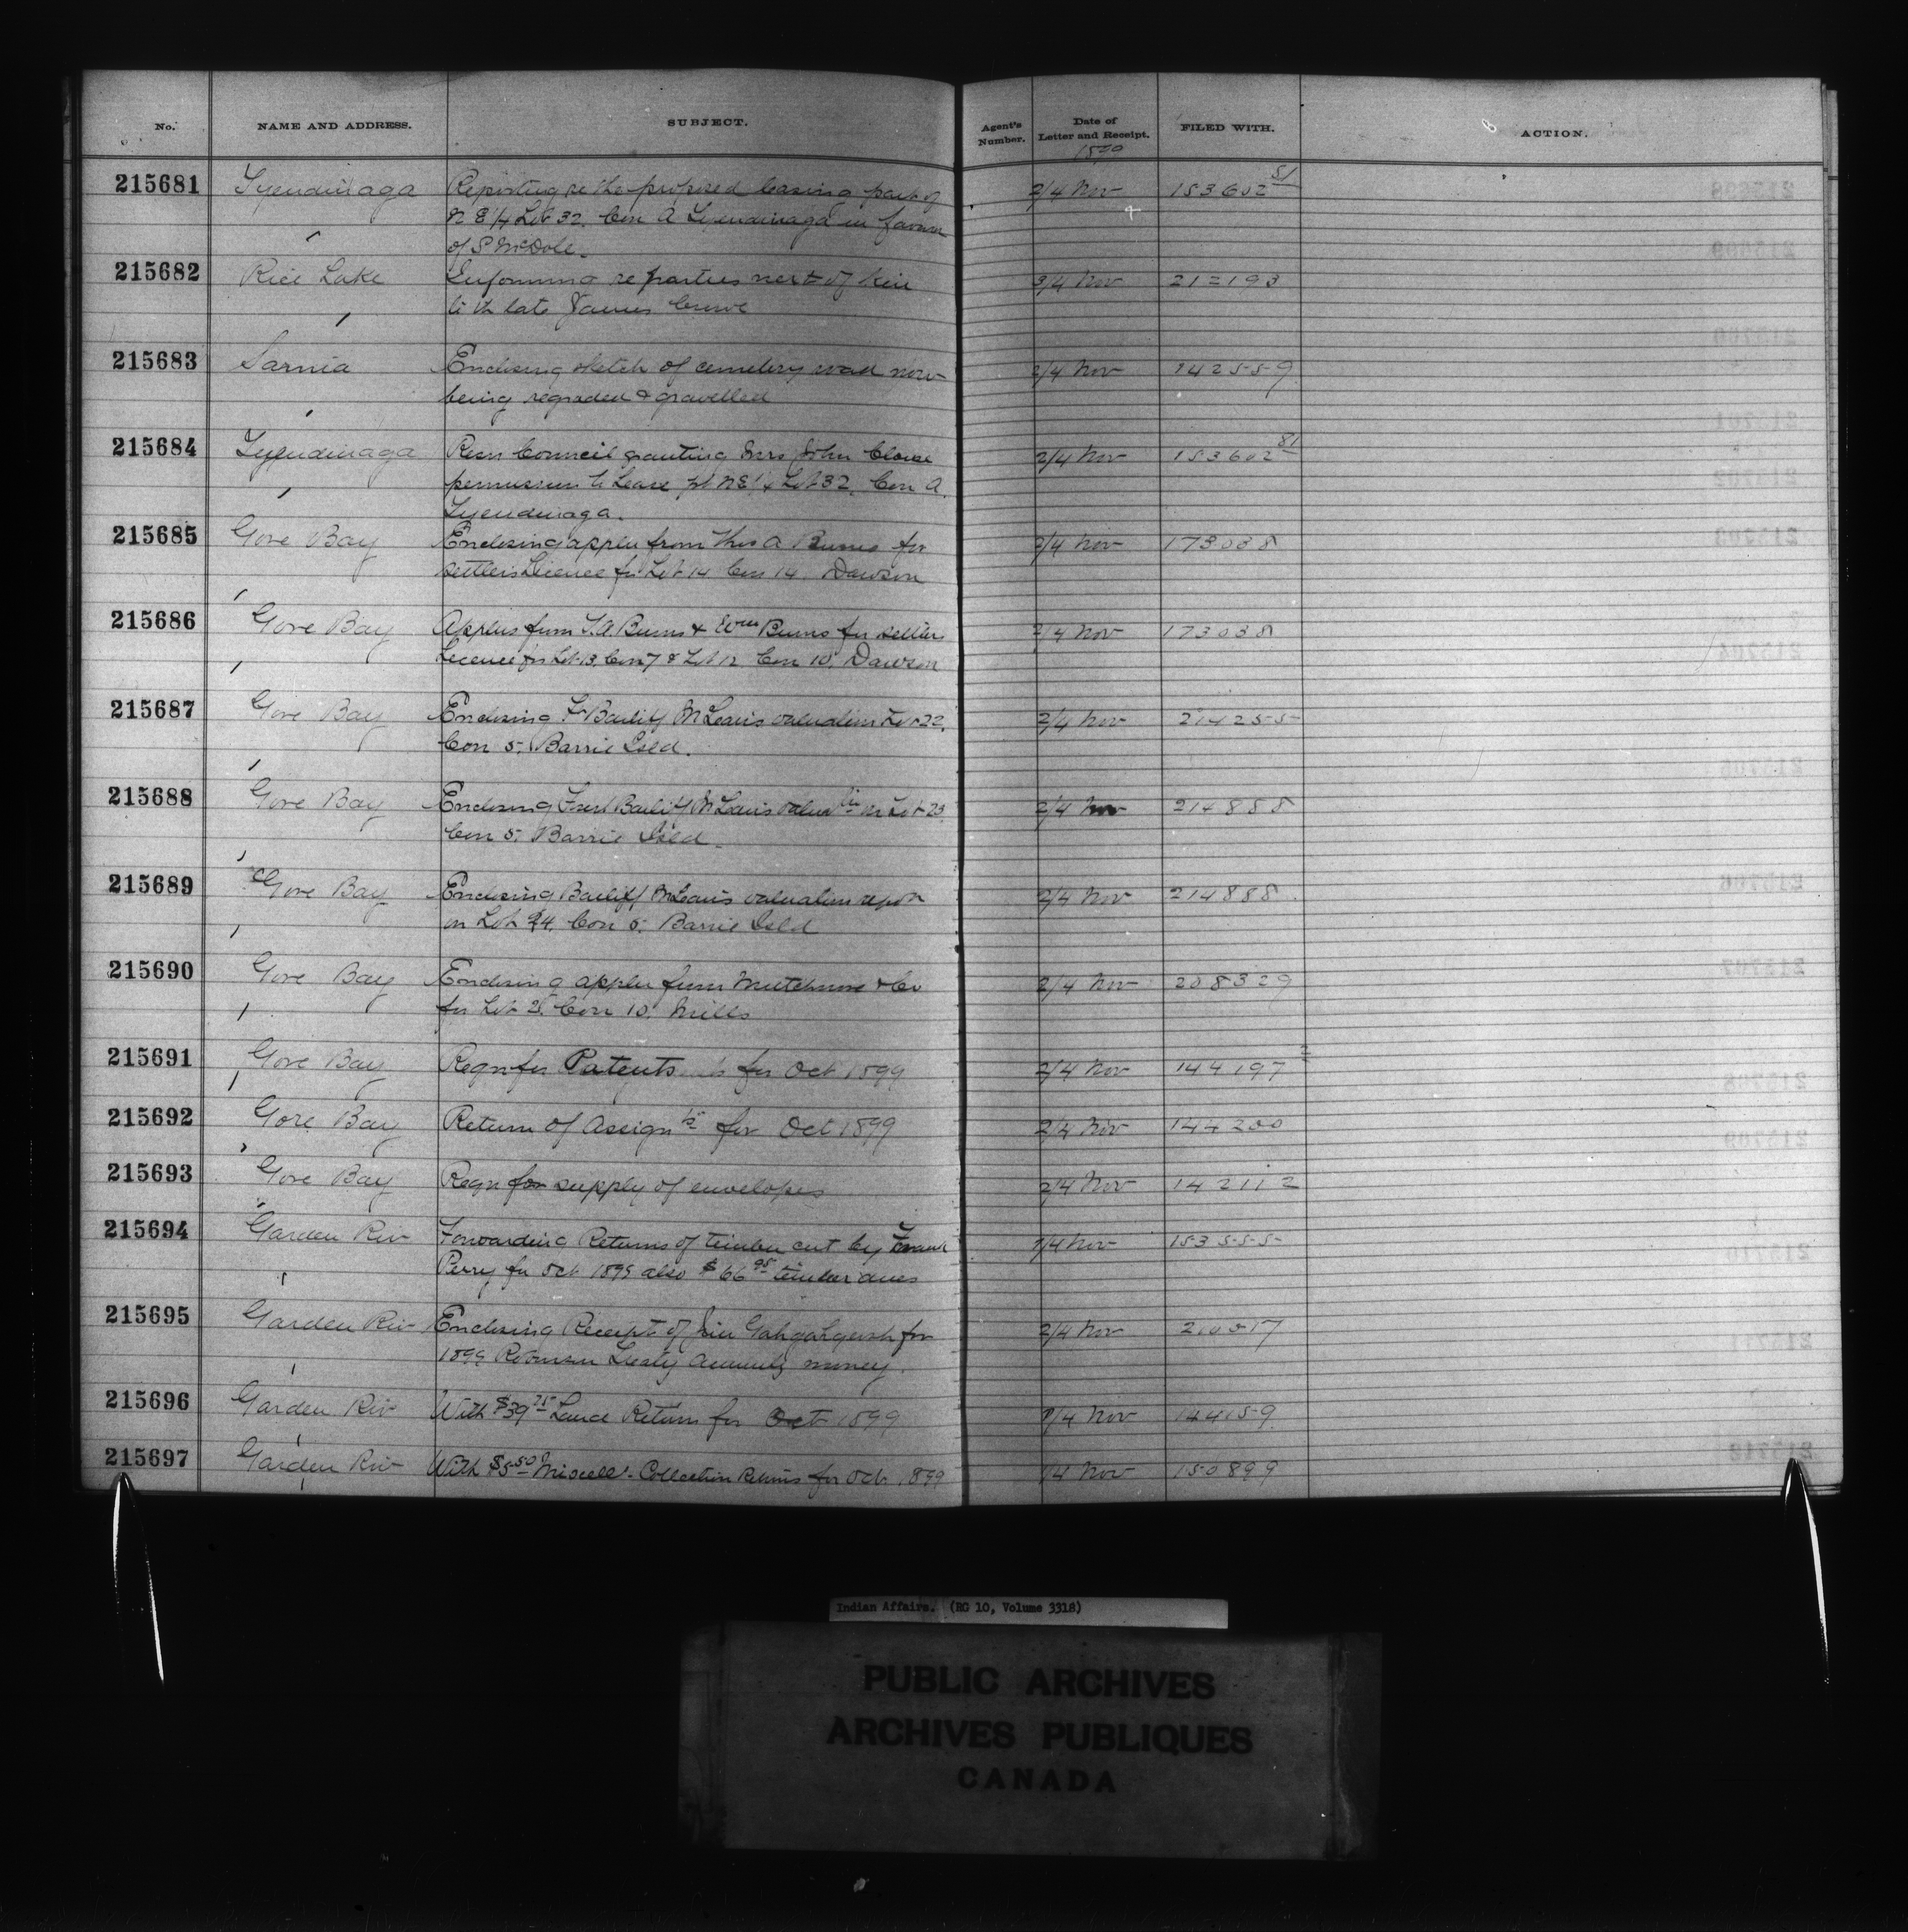 No. NAME AND ADDRESS. SUBJECT. Agent's Number. Date of Letter and Receipt. FILED WITH. ACTION.
215681 Tyendinaga Reporting re the proposed leasing part of 2/4 Nov 153602 81
N E 1/4 Lot 32. Con A Tyendinaga in favour
of S McDole.
215682 Rice Lake Informing re parties next of kin 3/4 Nov 212193
to th late James Crowe
215683 Sarnia Enclosing sketch of cemetery road now 2/4 Nov 142559
being regraded & gravelled
215684 Tyendinaga Resn Council granting Mrs John Clause 2/4 Nov 153602 81
permission to Lease pt N E 1/4 Lot 32, Con A.
Tyendinaga.
215685 Gore Bay Enclosing applcn from Thos A Burns for 2/4 Nov 173038
settlers Licence for Lot 14 Con 14. Dawson
215686 Gore Bay Applcns from T. A. Burns & Wm Burns for settlers 2/4 Nov 173038
Licence for Lot 13, Con 7 & Lot 12 Con 10. Dawson
215687 Gore Bay Enclosing Fr Bailiff McLean's valuation Lot 22, 2/4 Nov 214255
Con 5. Barrie Isld.
215688 Gore Bay Enclosing Forest Bailiff McLean's valuatin on Lot 23, 2/4 Nov 214888
Con 5. Barrie Isld.
215689 Gore Bay Enclosing Bailiff McLean's valuation report 2/4 Nov 214888
on Lot 24. Con 5. Barrie Isld
215690 Gore Bay Enclosing applcn from Mutchmore & Co 2/4 Nov 208329
for Lot 25. Con 10. Mills
215691 Gore Bay Reqn for Patents for Oct 1899 2/4 Nov 144197 2
215692 Gore Bay Return of Assignts for Oct 1899 2/4 Nov 144200
215693 Gore Bay Reqn for supply of envelopes 2/4 Nov 142112
215694 Garden Riv Forwarding Returns of timber cut by Frank 1/4 Nov 153555
Perry for Oct 1899 also $66 95 timber dues
215695 Garden Riv Enclosing Receipt of for 2/4 Nov 210517
1899 Robinson Treaty annuity money.
215696 Garden Riv With $39 75 Land Return for Oct 1899 1/4 Nov 144159
215697 Garden Riv With $5 50 Miscells. Collection Returns for Oct. 1899 1/4 Nov 150899
Indian Affairs. (RG 10, Volume 3318)
PUBLIC ARCHIVES
ARCHIVES PUBLIQUES
CANADA